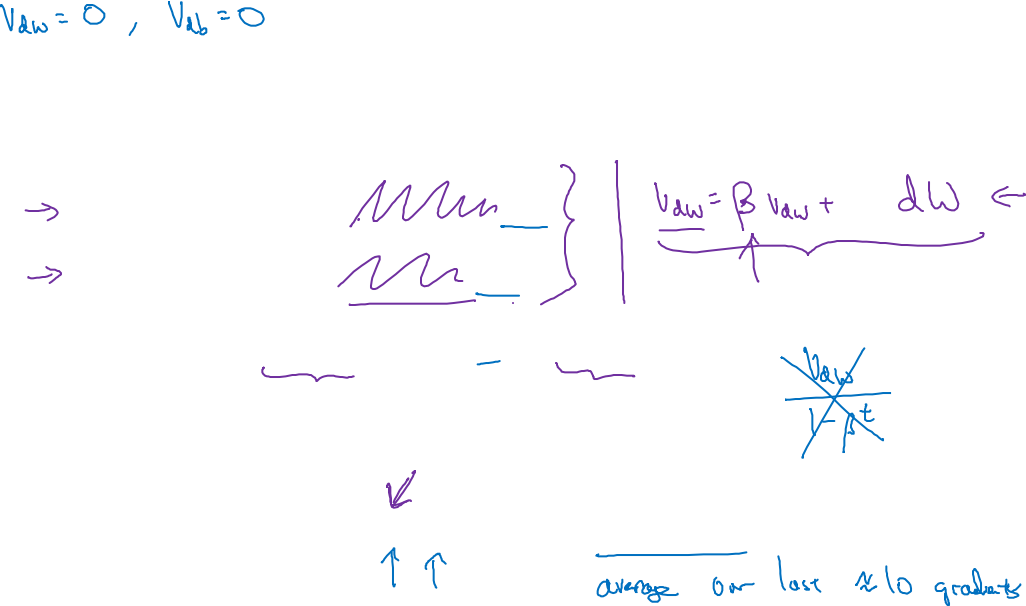 Vdw = 0 , Vdb = 0
Vdw = β Vdw + dW ←
Vdw
1 - β^t
average over last ≈ 10 gradients